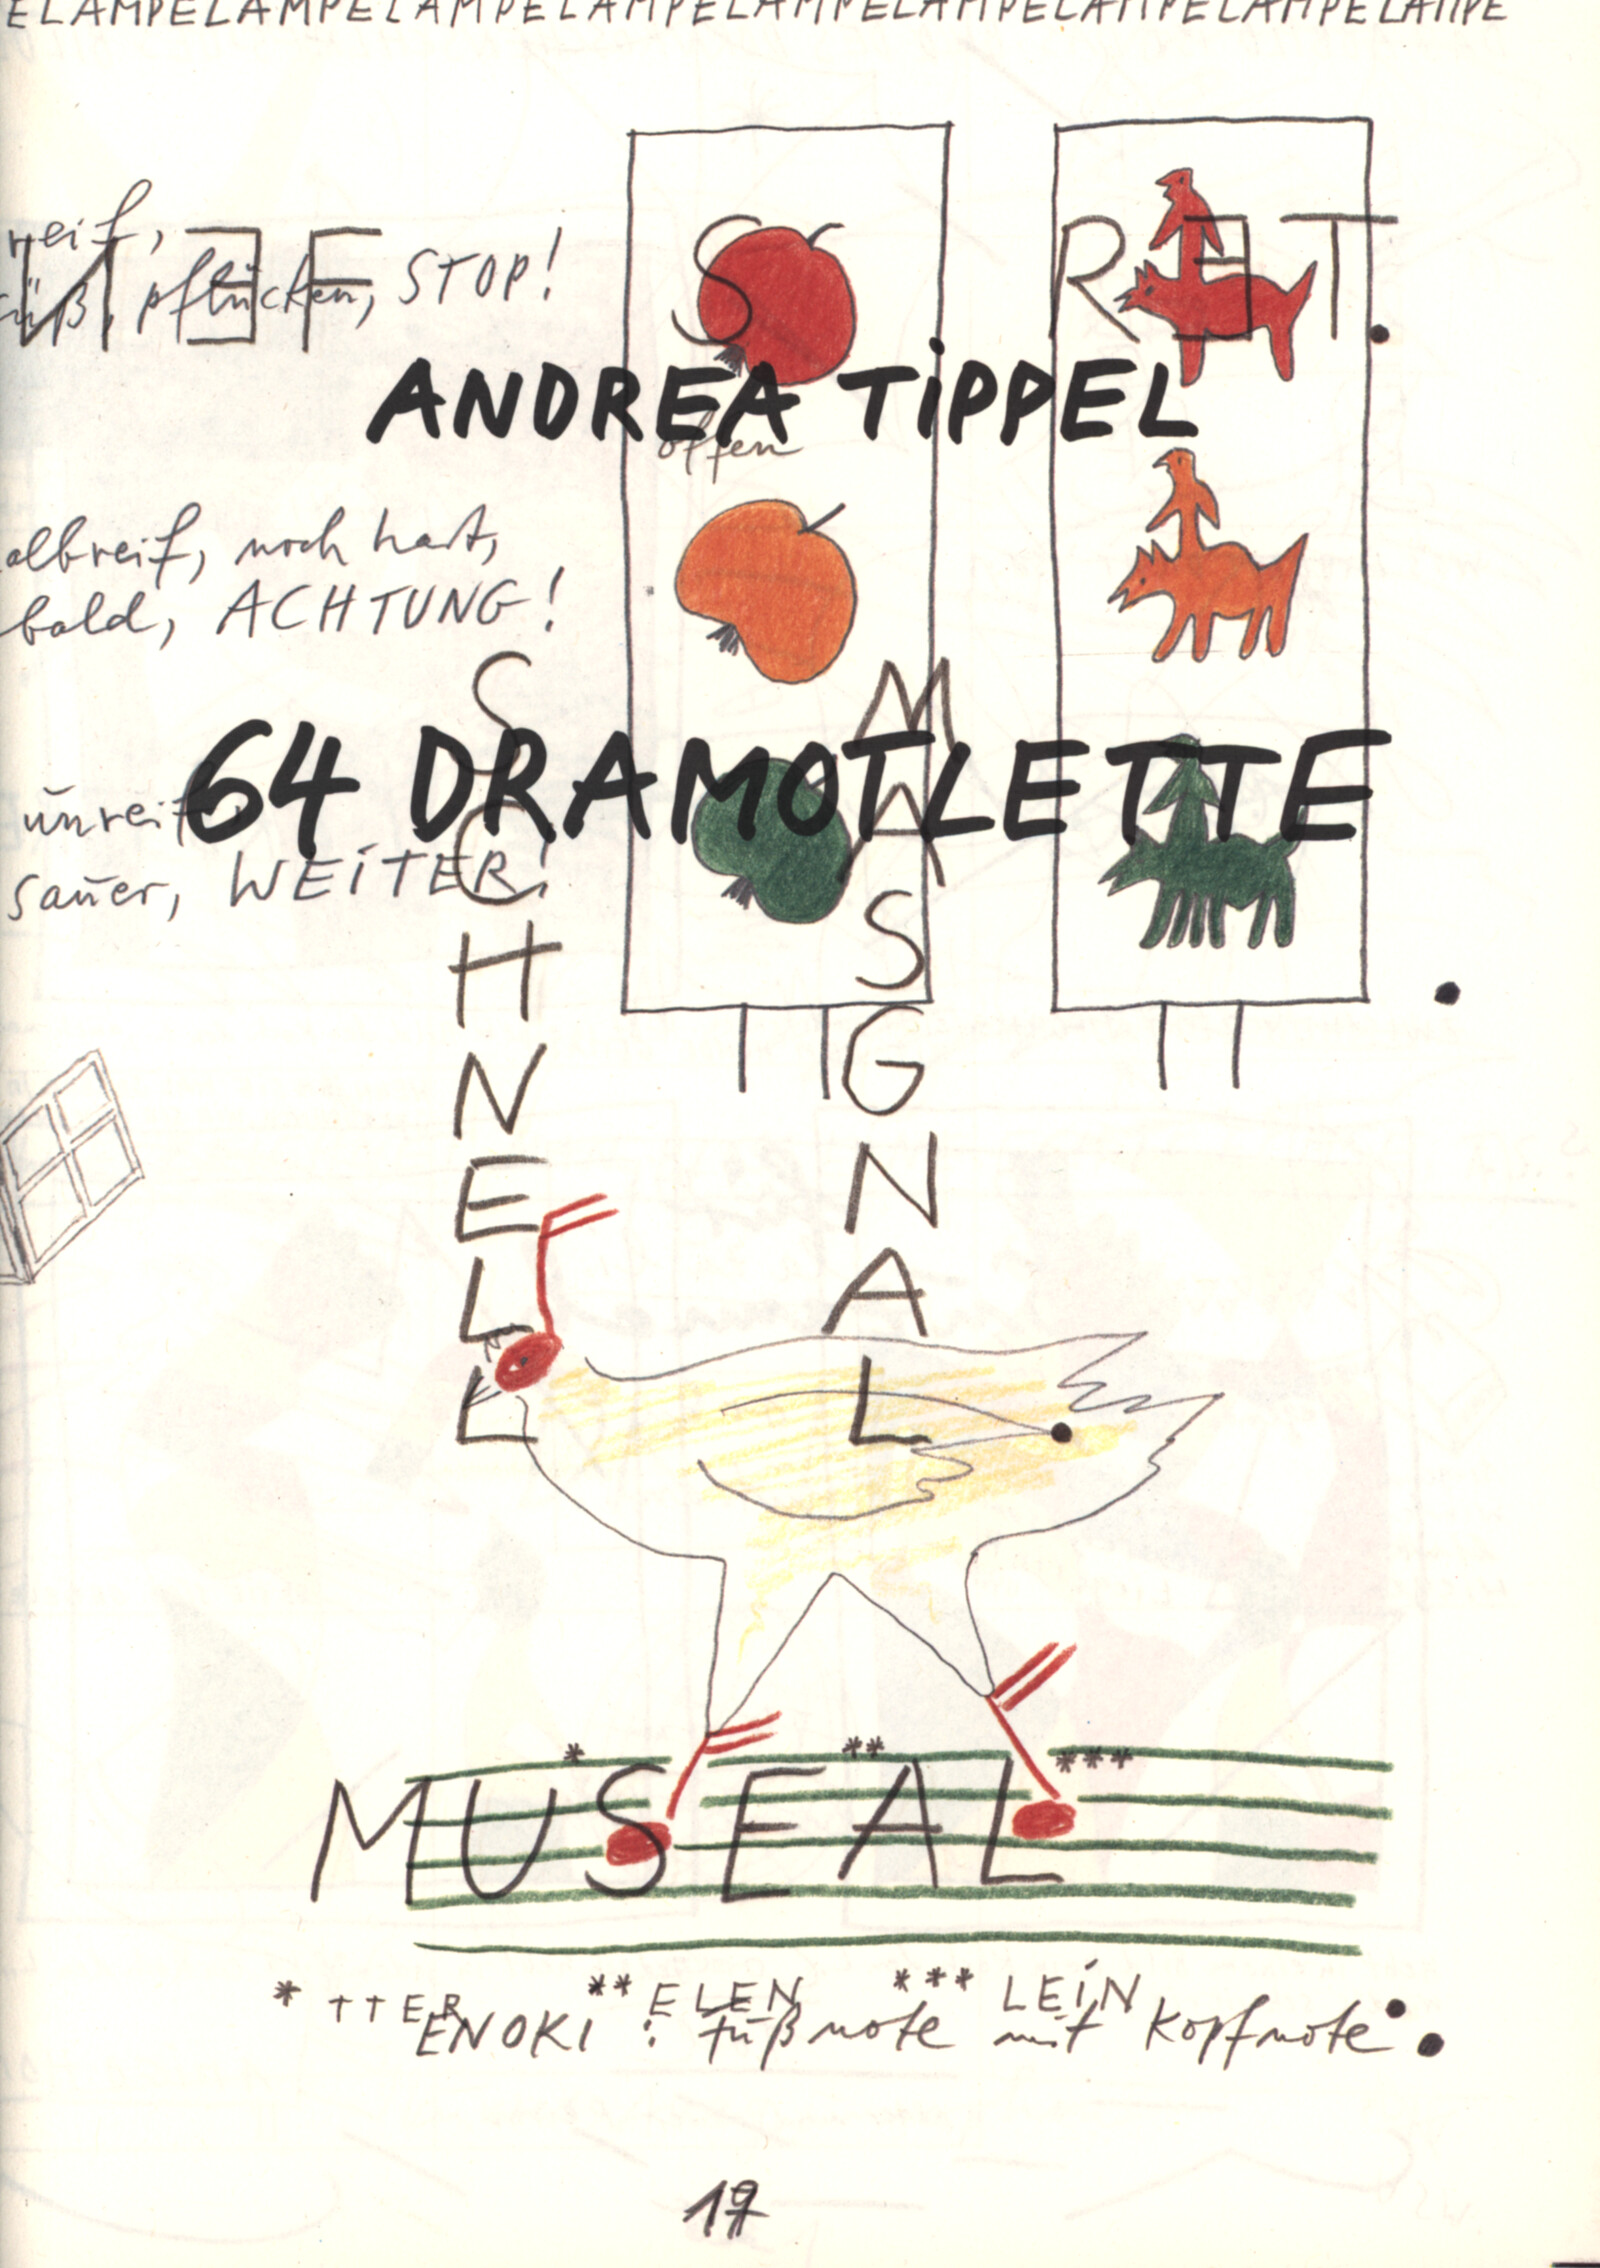 ELAMPELAMPELAMPELAMPELAMPELAMPELAMPELAMPELAMPELAMPELAMPE
reif,
süß, pflücken, STOP!
S
RET.
ANDREA TIPPEL
offen
albreif, noch hart,
bald, ACHTUNG!
64 DRAMOTLETTE
unreif,
sauer, WEITER!
SCHNELL
MASGNAL
MUS*EA**L***
* TTER ** ELEN *** LEIN
ENOKI : fußnote mit Kopfnote.